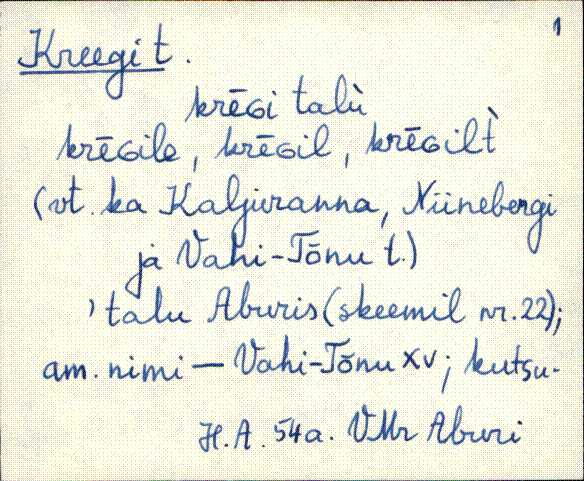 1
Kreegi t.
krēɢi talù
krēɢile, krēɢil, krēɢilt̀
(vt. ka Kaljuranna, Niinebergi
ja Vahi-Tõnu t.)
’talu Aburis (skeemil nr. 22);
am. nimi — Vahi-Tõnu XV; kutsu-
H.A. 54a. VMr Aburi